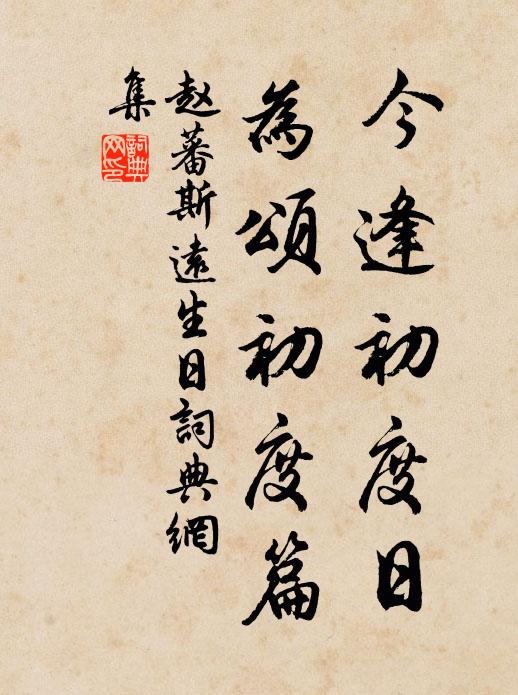 今逢初度日
為頌初度篇
赵蕃斯遠生日詞典網
集
詞典
网印